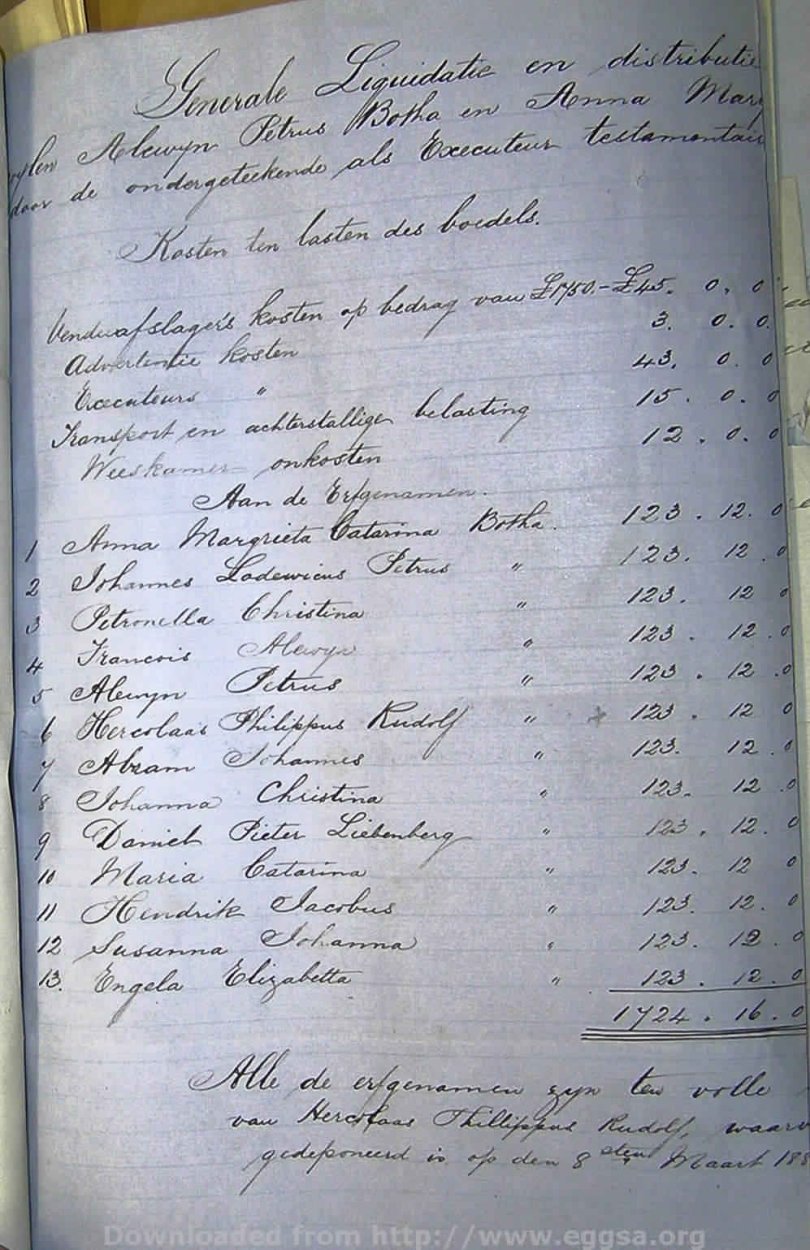 Generale Liquidatie en distributie
wylen Alewyn Petrus Botha en Anna Mar
door de ondergeteekende als Executeur testamentair
Kosten ten lasten des boedels.
Venduafslagers kosten op bedrag van £1750.- £45. 0. 0
Advertentie kosten 3. 0. 0.
Executeurs " 43. 0. 0
Transport en achterstallige belasting 15. 0. 0
Weeskamer onkosten 12. 0. 0
Aan de Erfgenamen.
1 Anna Margrieta Catarina Botha. 123. 12. 0
2 Johannes Lodewicus Petrus " 123. 12. 0
3 Petronella Christina " 123. 12 0
4 Francois Alewyn " 123. 12. 0
5 Alewyn Petrus " 123. 12. 0
6 Hercolaas Philippus Rudolf " + 123. 12 0
7 Abram Johannes " 123. 12. 0
8 Johanna Christina " 123. 12. 0
9 Daniel Pieter Liebenberg " 123. 12. 0
10 Maria Catarina " 123. 12 0
11 Hendrik Jacobus " 123. 12. 0
12 Susanna Johanna " 123. 12. 0
13. Engela Elizabetta " 123. 12. 0
1724. 16. 0
Alle de erfgenamen zyn ten volle
van Hercolaas Phillippus Rudolf, waarv
gedeponeerd is op den 8sten Maart 188
Downloaded from http://www.eggsa.org